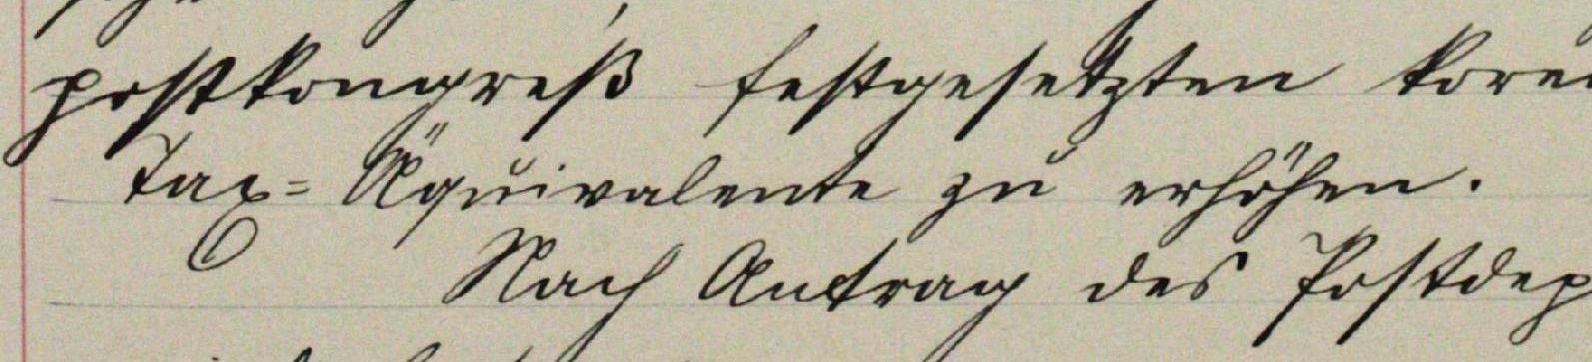 postkongreß festgesetzten kore
Tax-Äquivalente zu erhöhen.
Nach Antrag des Postdep